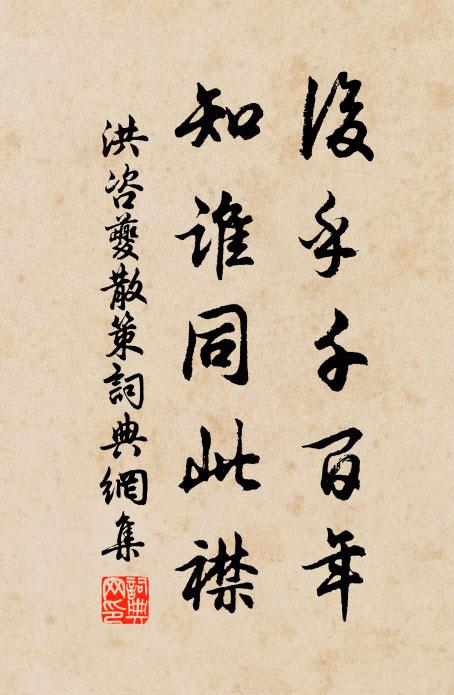 後乎千百年
知誰同此襟
洪咨夔散策詞典網集
詞典网印